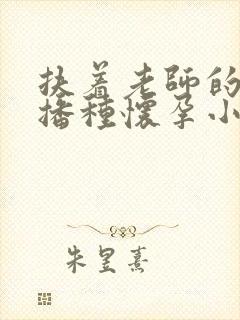 扶着老師的
播種懷孕小
朱昱熹